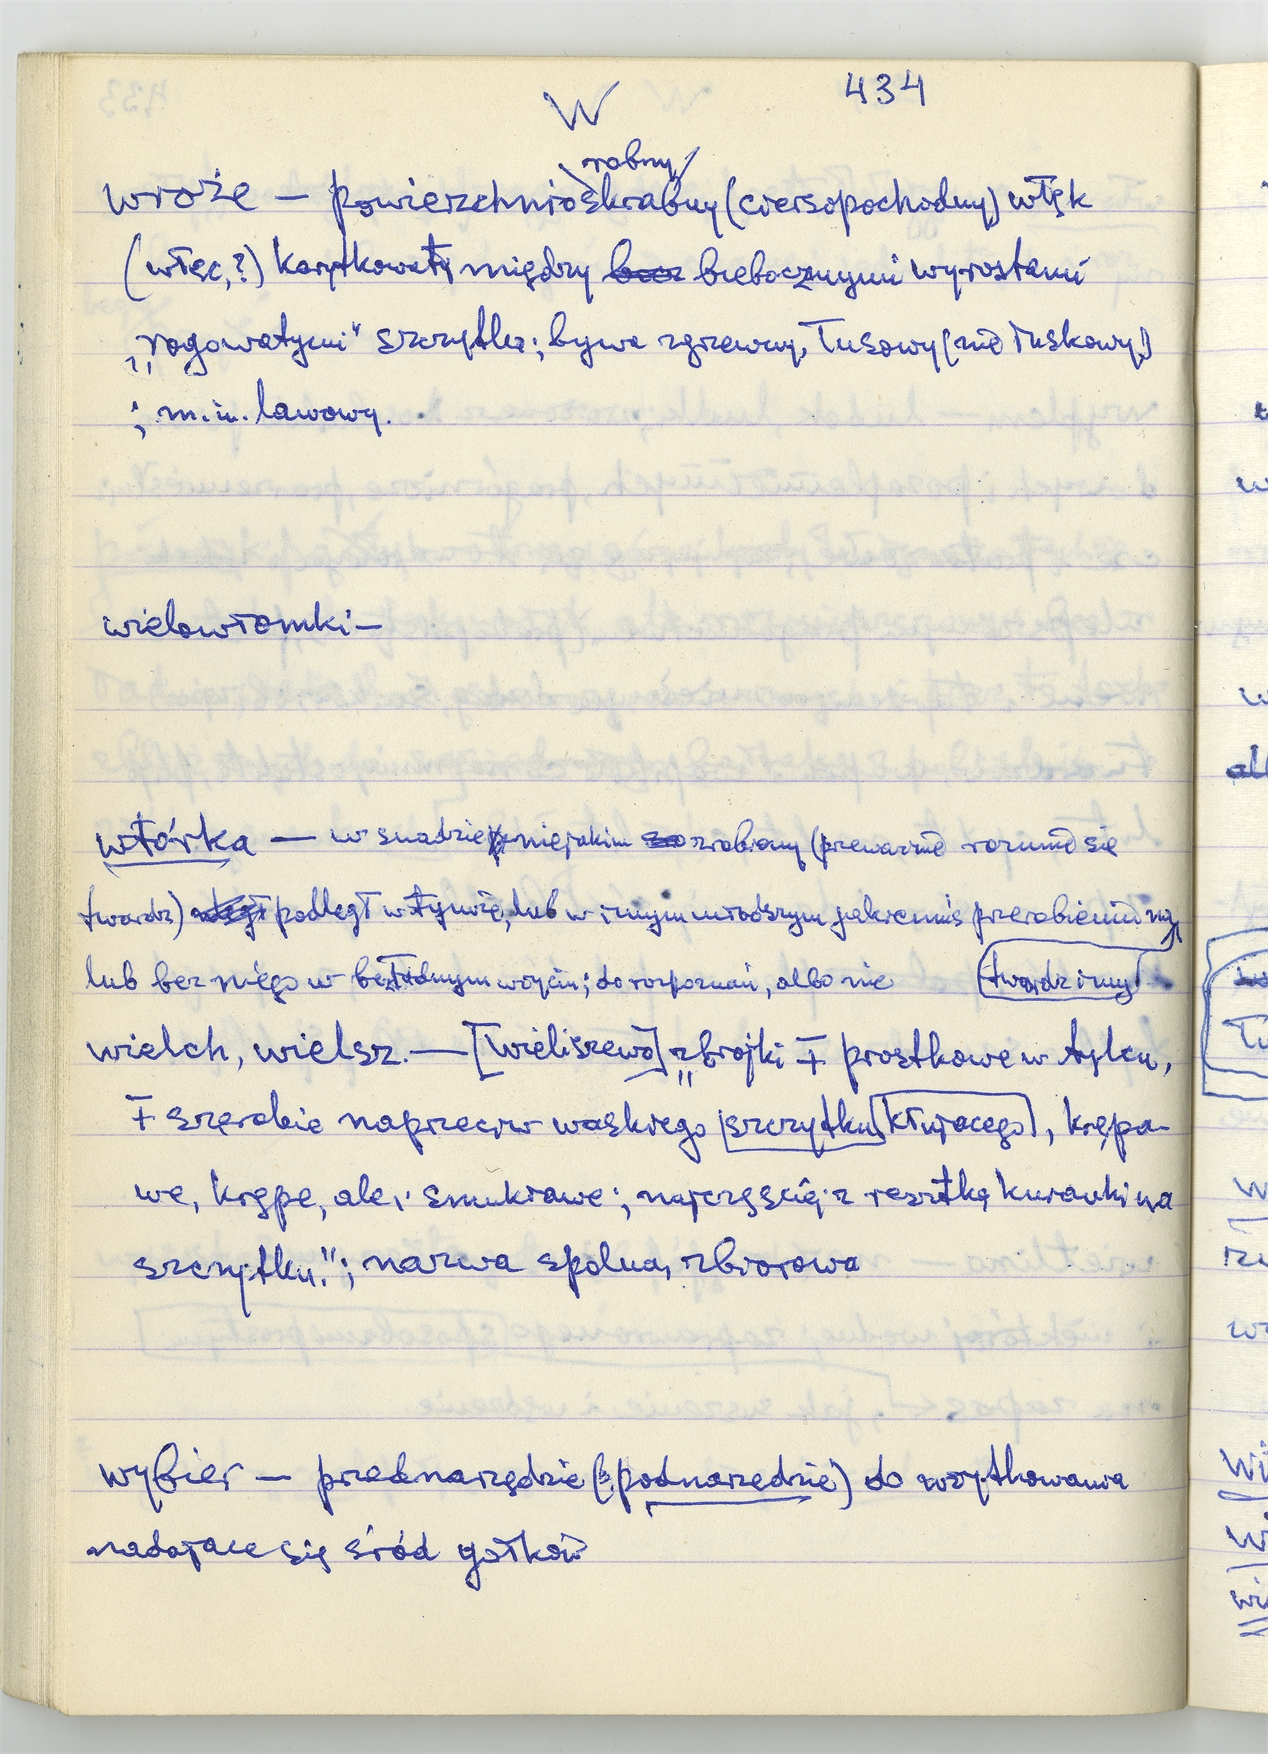 W 434
robny
wroże — powierzchnioskrabny (ciersopochodny) włęk
(włęc,?) korytkowaty między biebocznymi wyrostami
„rogowatymi" szczytka; bywa zgrzewny, łusowy (nie łuskowy)
; m.in. lawowy.
wielowłomki —
wtórka — w snadzie niejakim zrobiony (przeważnie rozumie się
twardz) podległ w tymże, lub w innym młodszym jakiemuś przerobieniu
lub bez niego w beztadnym wzięciu; do rozpoznań, albo nie twardzinny
wielch, wielsz. — [Wieliszewo] „zbrojki ∓ prostkowe w tylcu,
∓ szerokie naprzeciw wąskiego szczytku kłującego, krępa-
we, krępe, ale i smukławe; najczęściej z resztką kurawki na
szczytku."; nazwa spólna, zbiorowa
wybier — przednarzędzie (podnarzędzie) do użytkowania
nadające się śród gołków